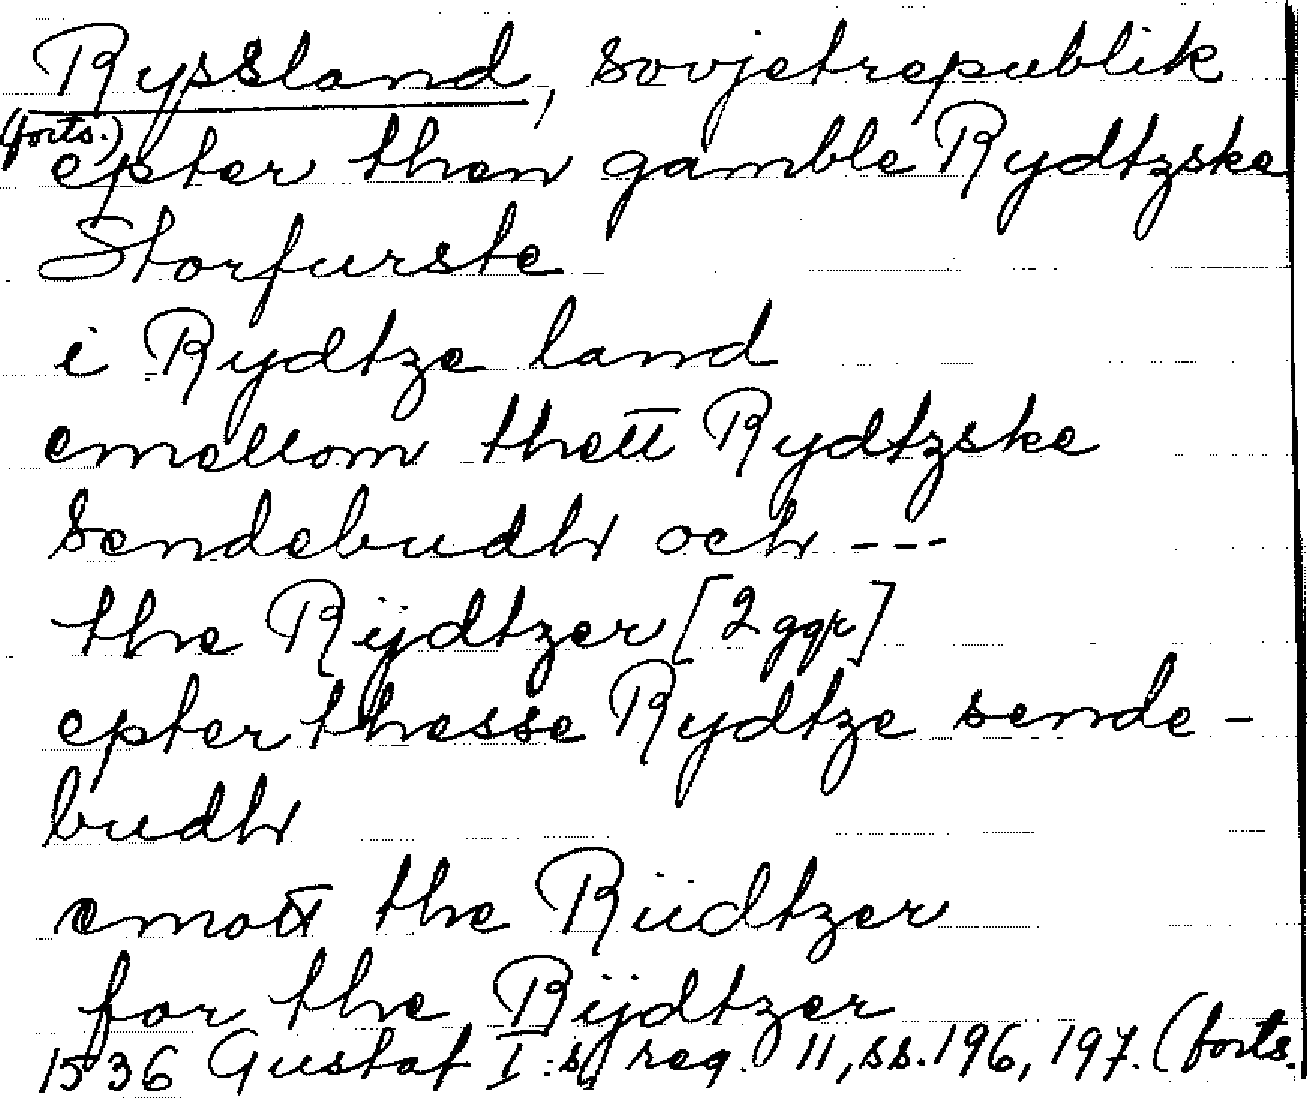 Ryssland, sovjetrepublik
(forts.)
epter then gamble Rydtzske
Storfurste
i Rydtze land
emellom thett Rydtzske
sendebudh och ---
the Rÿdtzer [2 ggr]
epter thesse Rydtze sende-
budh
emott the Rüdtzer
for the Rÿdtzer
1536 Gustaf I:s reg. 11, ss. 196, 197. (forts.